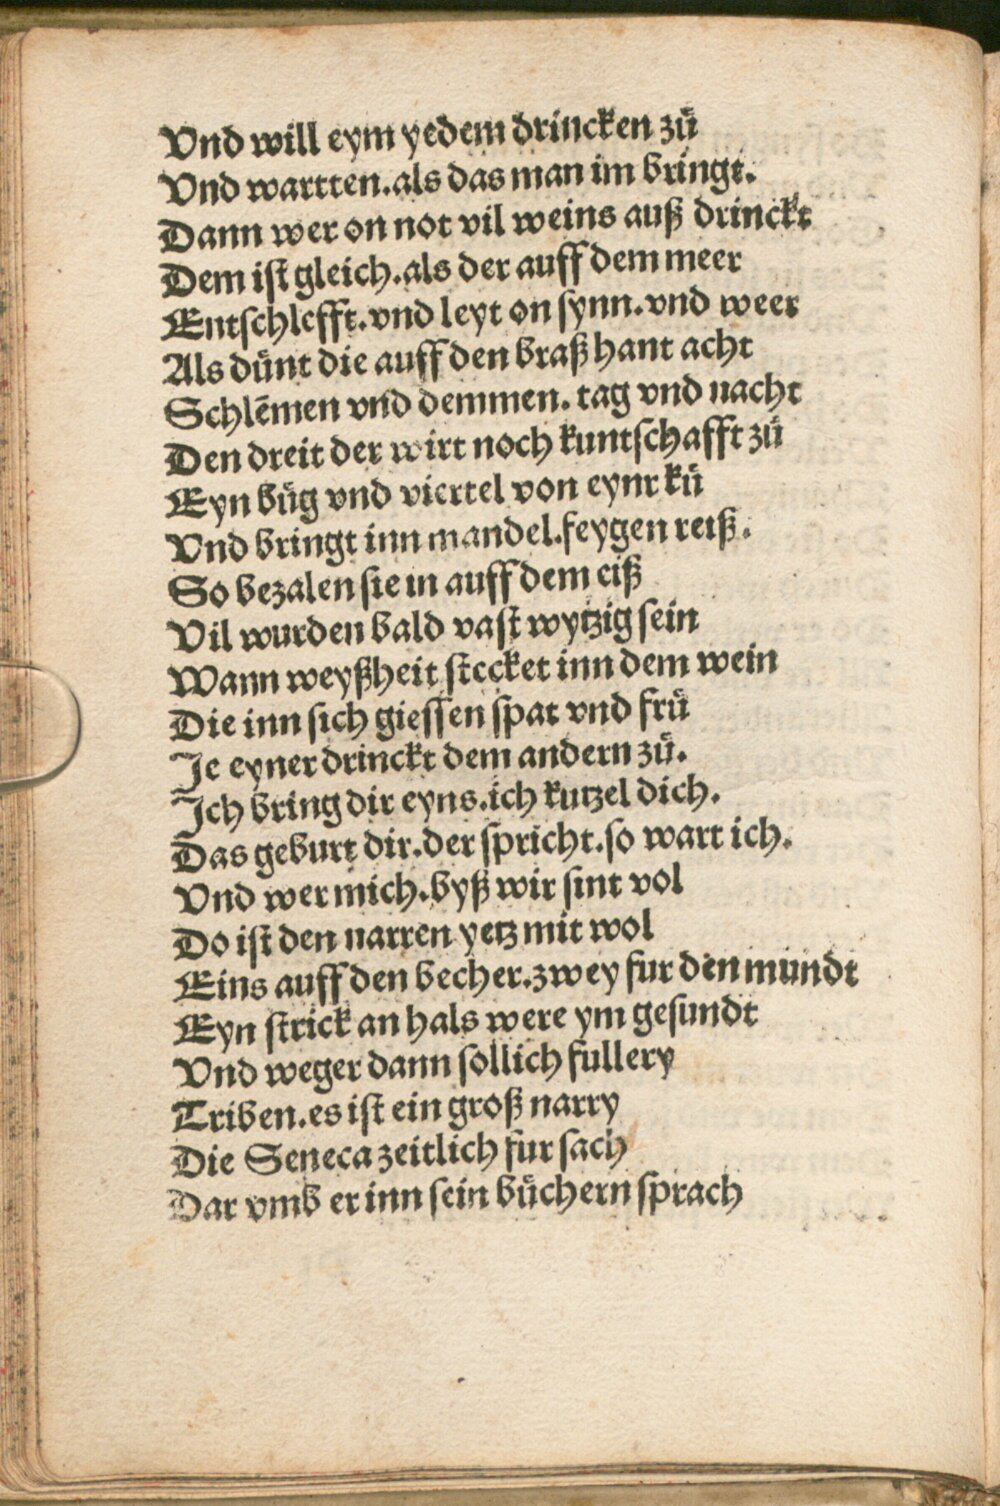 Vnd will eym yedem drincken zů
Vnd wartten.als das man im bringt.
Dann wer on not vil weins auß drinckt
Dem ist gleich.als der auff dem meer
Entschlefft.vnd leyt on synn.vnd weer
Als důnt die auff den braß hant acht
Schlēmen vnd demmen. tag vnd nacht
Den dreit der wirt noch kuntschafft zů
Eyn bůg vnd viertel von eynr ků
Vnd bringt inn mandel.feygen reiß.
So bezalen sie in auff dem eiß
Vil wurden bald vast wytzig sein
Wann weyßheit stecket inn dem wein
Die inn sich giessen spat vnd frů
Je eyner drinckt dem andern zů.
Ich bring dir eyns.ich kutzel dich.
Das geburt dir.der spricht.so wart ich.
Vnd wer mich.byß wir sint vol
Do ist den narren yetz mit wol
Eins auff den becher.zwey fur den mundt
Eyn strick an hals were ym gesundt
Vnd weger dann sollich fullery
Triben.es ist ein groß narry
Die Seneca zeitlich fur sach
Dar vmb er inn sein bůchern sprach